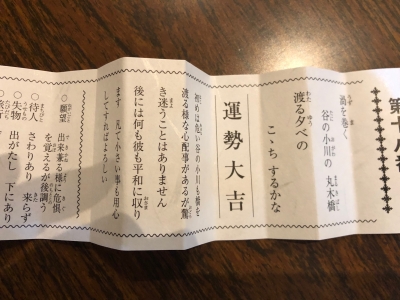 第十八番
渦を巻く
谷の小川の 丸木橋
渡る夕べの
こゝちするかな
運勢大吉
初めは危い谷の小川も橋を
渡る様な心配事があるが驚
き迷うことはありません
後には何も彼も平和に取り
ます 凡て小さい事も用心
してすればよろしい
○願望 出来兼る様に危惧
を覚えるが後調う
○待人 さわりあり 来らず
○失物 出がたし 下にあり